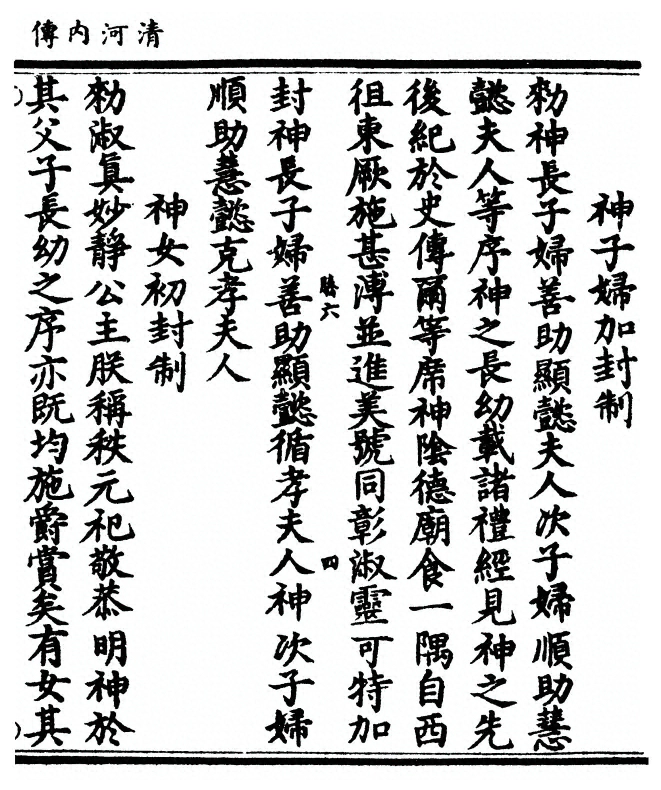 清河內傳
神子婦加封制
勑神長子婦善助顯懿夫人次子婦順助慧
懿夫人等序神之長幼載諸禮經見神之先
後紀於史傳爾等席神陰德廟食一隅自西
徂東厥施甚溥並進美號同彰淑靈可特加
騰六
四
封神長子婦善助顯懿循孝夫人神次子婦
順助慧懿克孝夫人
神女初封制
勑淑真妙靜公主朕稱秩元祀敬恭明神於
其父子長幼之序亦既均施爵賞矣有女其